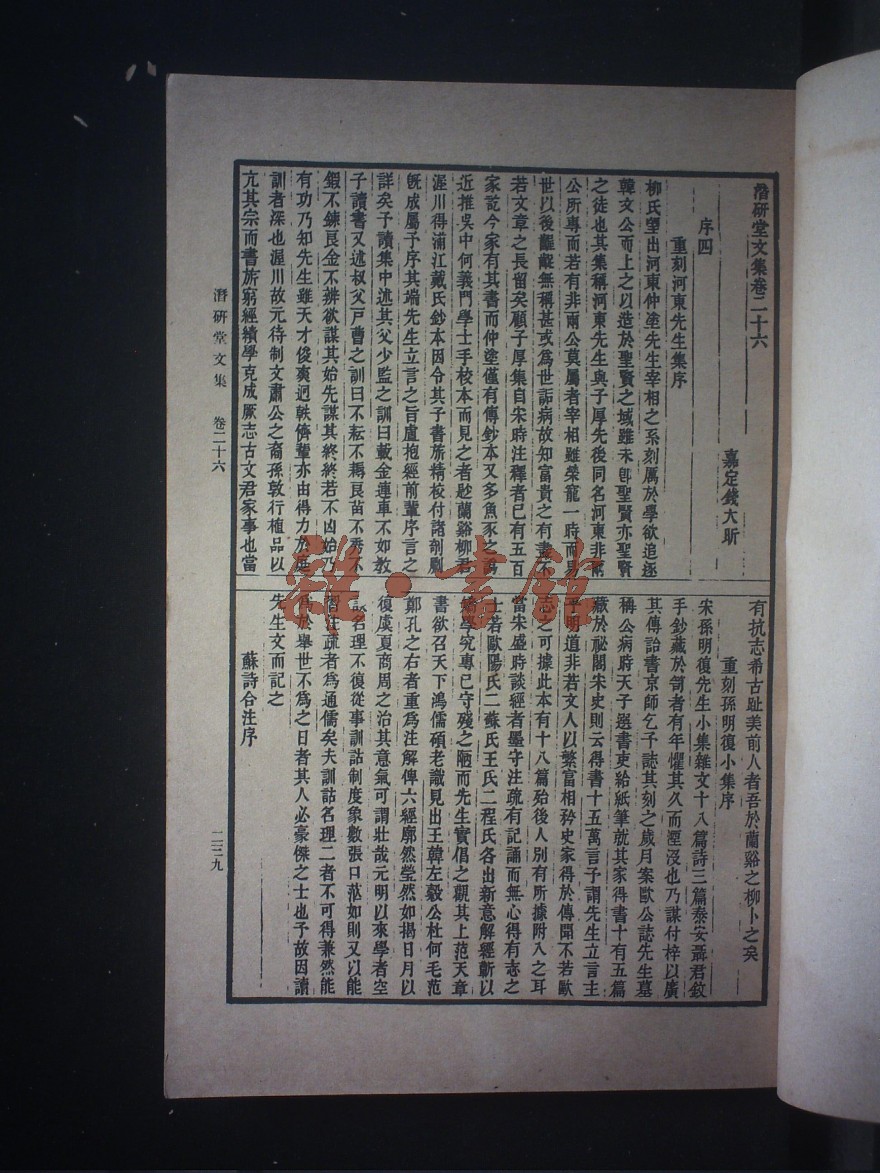 潛研堂文集卷二十六
嘉定錢大昕
序四
重刻河東先生集序
柳氏望出河東仲塗先生宰相之系刻厲於學欲追逐
韓文公而上之以造於聖賢之域雖未卽聖賢亦聖賢
之徒也其集稱河東先生與子厚先後同名河東非兩
公所專而若有非兩公莫屬者宰相雖榮寵一時而易
世以後齷齪無稱甚或為世詬病故知富貴之有盡不
若文章之長留矣顧子厚集自宋時注釋者已有五百
家訖今家有其書而仲塗僅有傳鈔本又多魚豕之譌
近推吳中何義門學士手校本而見之者尠蘭谿柳君
渥川得浦江戴氏鈔本因令其子書旂精校付諸剞劂
旣成屬予序其端先生立言之旨盧抱經前輩序言之
詳矣予讀集中述其父少監之訓曰載金連車不如教
子讀書又述叔父戸曹之訓曰不耘不耨良苗不秀不
鍜不鍊良金不辨欲謀其始先謀其終終若不凶始乃
有功乃知先生雖天才俊爽迥軼儕輩亦由得力於庭
訓者深也渥川故元待制文肅公之裔孫敦行植品以
亢其宗而書旂窮經績學克成厥志古文君家事也當
有抗志希古趾美前人者吾於蘭谿之柳卜之矣
重刻孫明復小集序
宋孫明復先生小集雜文十八篇詩三篇泰安聶君鈫
手鈔藏於笥者有年懼其久而湮沒也乃謀付梓以廣
其傳詒書京師乞予誌其刻之歲月案歐公誌先生墓
稱公病時天子選書吏給紙筆就其家得書十有五篇
藏於祕閣宋史則云得書十五萬言予謂先生立言主
乎明道非若文人以繁富相矜史家得於傳聞不若歐
志之可據此本有十八篇殆後人別有所據附入之耳
當宋盛時談經者墨守注疏有記誦而無心得有志之
士若歐陽氏二蘇氏王氏二程氏各出新意解經蘄以
矯學究專已守殘之陋而先生實倡之觀其上范天章
書欲召天下鴻儒碩老識見出王韓左穀公杜何毛范
鄭孔之右者重為注解俾六經廓然瑩然如揭日月以
復虞夏商周之治其意氣可謂壯哉元明以來學者空
談名理不復從事訓詁制度象數張口茫如則又以能
習注疏者為通儒矣夫訓詁名理二者不可得兼然能
為於舉世不為之日者其人必豪傑之士也予故因讀
先生文而記之
蘇詩合注序
潛研堂文集 卷二十六
二三九
雜·書館